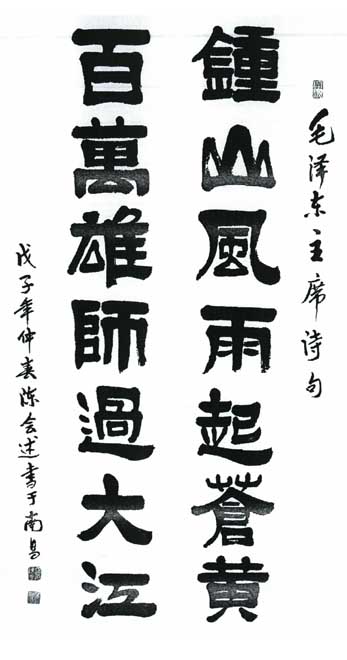 毛泽东主席诗句
鍾山風雨起蒼黄
百萬雄師過大江
戊子年仲春陈会述書于南昌